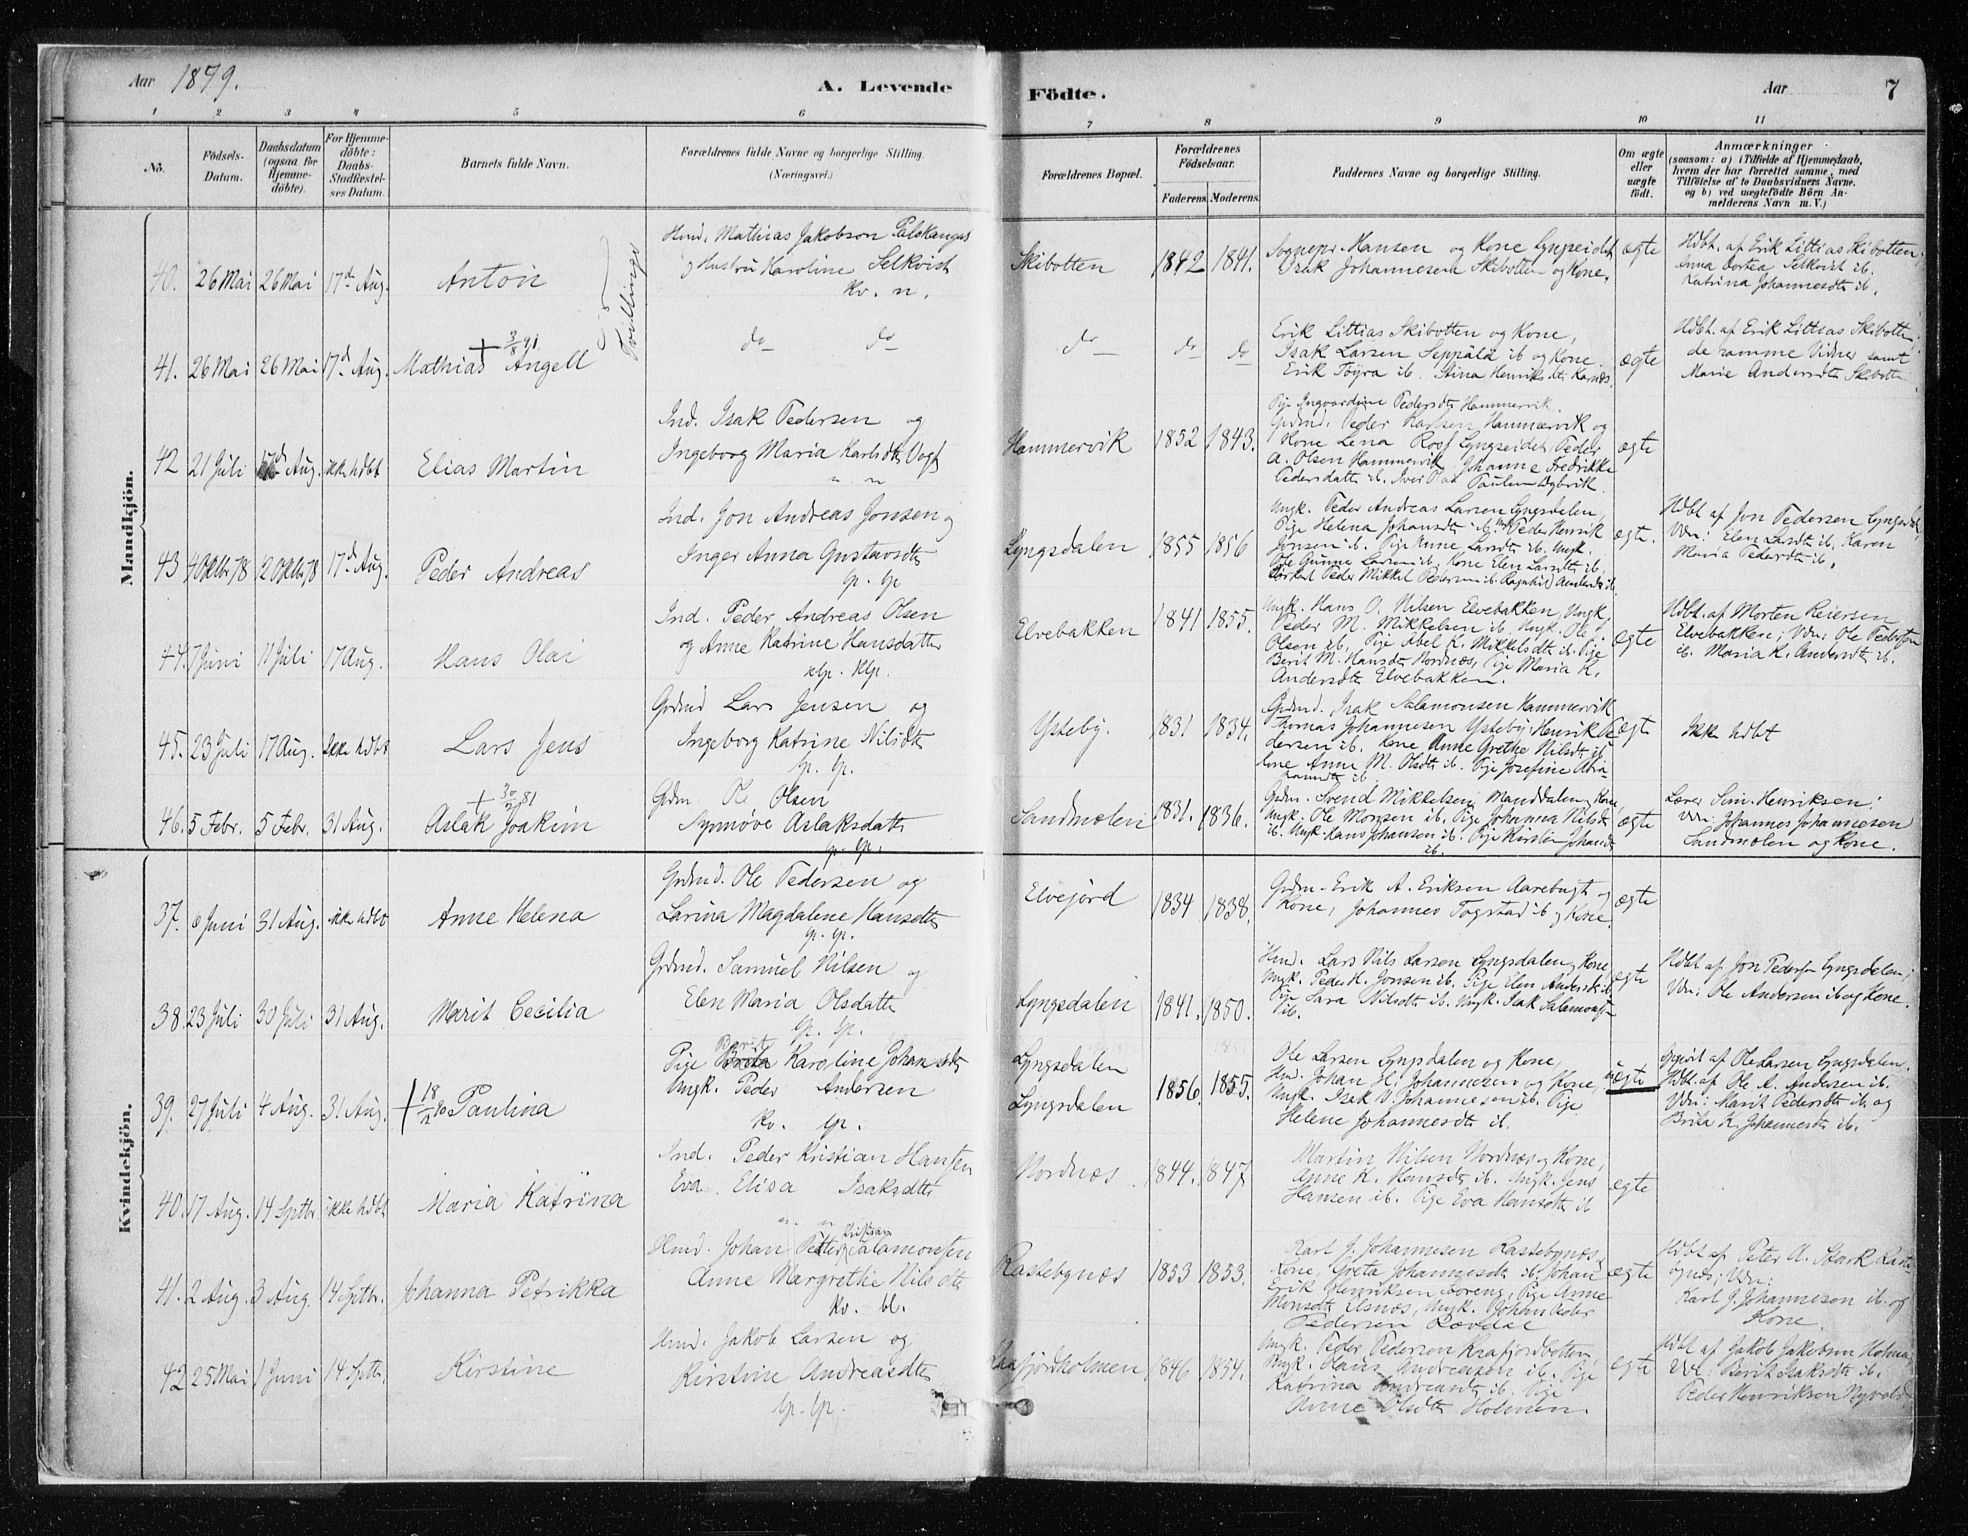 Aar 1879.
A. Levende
Födte.
Aar
7
1 2 3 4 5 6 7 8 9 10 11
No.
Födsels-
Datum.
Daabsdatum
(ogsaa for
Hjemme-
döbte).
For Hjemme-
döbte:
Daabs-
Stadfæstel-
ses Datum.
Barnets fulde Navn.
Forældrenes fulde Navne og borgerlige Stilling.
(Næringsvei.)
Forældrenes Bopæl.
Forældrenes
Födselsaar.
Faderens. Moderens.
Faddernes Navne og borgerlige Stilling.
Om ægte
eller
uægte
födt.
Anmærkninger
(saasom: a) i Tilfælde af Hjemmedaab,
hvem der har forrettet samme, med
Tilföielse af to Daabsvidners Navne.
og b) ved uægtefödte Börn An-
melderens Navn m. V.)
Mandkjön.
40. 26 Mai 26 Mai 17d Aug. Anton
Tvillinger
Hmd. Mathias Jakobson Palskangas
og Hustru Karoline Selkvist
kv. n.
Skibotten 1842 1841.
Sognepr. Hansen og Kone Lyngseidet
Isak Johannesen Skibotten og Kone.
ægte
Hdbt. af Erik Littias Skibotten;
Anna Dortea Selkvist ib.
Katrina Johannesdtr ib.
41. 26 Mai 26 Mai 17d Aug. Mathias Angell
+ 3/8 91
do do
do do do
Erik Littias Skibotten og Kone,
Isak Larsen Seppälä ib og Kone.
Erik Töyra ib. Stina Henriksdtr Karnæs.
ægte
Hdbt. af Erik Littias Skibotten;
de samme Vidner samt
Marie Andersdtr Skibotten
42 21 Juli 17d Aug. ikke hdbt Elias Martin
Ind. Isak Pedersen og
Ingeborg Maria Karlsdtr Vogt
n n
Hammervik 1852 1843.
Pige Ingvardine Pedersdtr Hammervik.
Grdmd. Peder Karlsen Hammervik og
Kone Lena Roof Lyngseidet Peder
A. Olsen Hammervik Johanne Fredrikke
Pedersdatter ib. Iver Olai Paulsen Dybvik.
ægte
43 4 Oktbr 78 12 Oktbr 78 17d Aug. Peder Andreas
Ind. Jon Andreas Jonsen og
Inger Anna Gustavsdtr
lp. lp
Lyngsdalen 1855 1856
Ungk. Peder Andreas Larsen Lyngsdalen,
Pige Helena Johansdtr ib. Ungk. Peder Henrik
Jonsen ib. Pige Anne Larsdtr ib. Ungk.
Ole Gunne Larsen ib, Kone Elen Larsdtr ib.
ægte.
Hdbt af Jon Pedersen Lyngsdal;
Vdn: Elen Larsdtr ib. Karen
Maria Pedersdtr ib.
44. 7 Juni 11 Juli 17 Aug. Hans Olai
Ind. Peder Andreas Olsen
og Anne Katrine Hansdatter
klp. klp.
Elvebakken 1841 1855.
Ungk. Hans O. Nilsen Elvebakken, Ungk.
Peder M. Mikkelsen ib. Ungk. Ole
Olsen ib., Pige Abel K. Mikkelsdtr ib. Pige
Berit M. Hansdtr Nordnæs, Pige Maria K.
Andersdtr Elvebakken.
ægte
Hdbt. af Morten Reiersen
Elvebakken; Vdn: Ole Pedersen
ib. Maria K. Andersdtr ib.
45. 23 Juli 17 Aug. Ikke hdbt Lars Jens
Grdmd Lars Jensen og
Ingeborg Katrine Nilsdtr
lp. lp.
Ysteby. 1831 1834.
Grdmd. Isak Salamonsen Hammervik
Thomas Johannesen Ysteby, Henrik Pe-
dersen ib. Kone Anne Grethe Nilsdtr ib
Kone Anne M. Olsdtr ib. Pige Josefine Abra-
hamsdtr ib.
ægte
Ikke hdbt
46. 5 Febr. 5 Febr. 31 Aug. Aslak Joakim
+ 30/7 81
Grdm Ole Olsen
Synnöve Aslaksdatter
lp. lp.
Sandmælen 1831. 1836.
Grdm. Svend Mikkelsen Manddalen, Kone,
Ungk. Ole Monsen ib. Pige Johanna Nilsdtr
ib. Ungk. Hans Johansen ib. Pige Kirsten Johansdtr
ib.
ægte
Lærer Sim. Henriksen;
Vdn: Johannes Johannesen
Sandmælen og Kone.
Kvindekjön.
37. 6 Juni 31 Aug. ikke hdbt Anne Helena
Grdmd. Ole Pedersen og
Larina Magdalene Hansdtr
lp. lp.
Elvejord 1834 1838.
Grdm. Erik A. Eriksen Aarebugt og
Kone, Johannes Fogstad ib og Kone
ægte
38. 23 Juli 30 Juli 31 Aug. Marit Cecilia
Grdmd. Samuel Nilsen og
Elen Maria Olsdatter
lp. lp.
Lyngsdalen 1841. 1850.
Hmd. Lars Nils Larsen Lyngsdalen, Kone
Ungk. Peder H. Jonsen ib. Pige Elen Andersdtr ib.
Pige Sara Nilsdtr ib. Ungk. Isak Salamonsen
ib.
ægte
Hdbt af Jon Pedersen Lyngsdalen;
Vdn: Ole Andersen ib og Kone.
39. 27 Juli 4 Aug. 31 Aug. Paulina
Pige Berit Karoline Johansdtr
Ungk. Peder Andersen
kv. lp.
Lyngsdalen
Lyngsdalen
1856. 1855.
Ole Larsen Lyngsdalen og Kone
Hmd. Johan H. Johannesen og Kone,
Ungk. Isak V. Johannesen ib. Pige
Helene Johannesdtr ib.
uægte
Opgivet af Ole Larsen Lyngsdalen.
Hdbt. af Ole A. Andersen ib.
Vdn: Marit Pedersdtr ib. og
Brita K. Johannesdtr ib.
40. 17 Aug. 14 Sptbr. ikke hdbt Maria Katrina
Ind. Peder Kristian Hansen
Eva Elisa Isaksdtr
n. n
Nordnæs 1844. 1847
Martin Nilsen Nordnæs og Kone,
Anne K. Hansdtr ib. Ungk. Jens
Hansen ib. Pige Eva Hansdtr ib
ægte
41. 2 Aug. 3 Aug. 14 Sptbr. Johanna Petrikka
Hmd. Johan Petter Kristian Salamonsen
Anne Margrethe Nilsdtr
kv. bl.
Rastebynæs 1853 1853.
Karl J. Johannesen Rastebynæs,
Kone, Greta Johannesdtr ib. Johan
Erik Henriksen Soreng, Pige Anne
Monsdtr Elsnæs, Ungk. Johan Peder
Pedersen Rövdal
ægte
Hdbt af Peter A. Stark Raste-
bynæs; Vdn:
Karl J. Johannesen ib. og
Kone.
42 25 Mai 1 Juni 14 Sptbr. Kirstine
Hmd. Jakob Larsen og
Kirstine Andreasdtr
lp. lp.
1846 1854.
Ungk. Peder Pedersen Kaafjordbotten,
Ungk. Hans Andreasen ib. Pige
Katrina Andreasdtr ib. Pige
Anne Olsdtr Holmen.
ægte
Hdbt af Jakob Jakobsen Holmen
Vdn: Berit Isaksdtr ib.
Peder Henriksen Nyvold